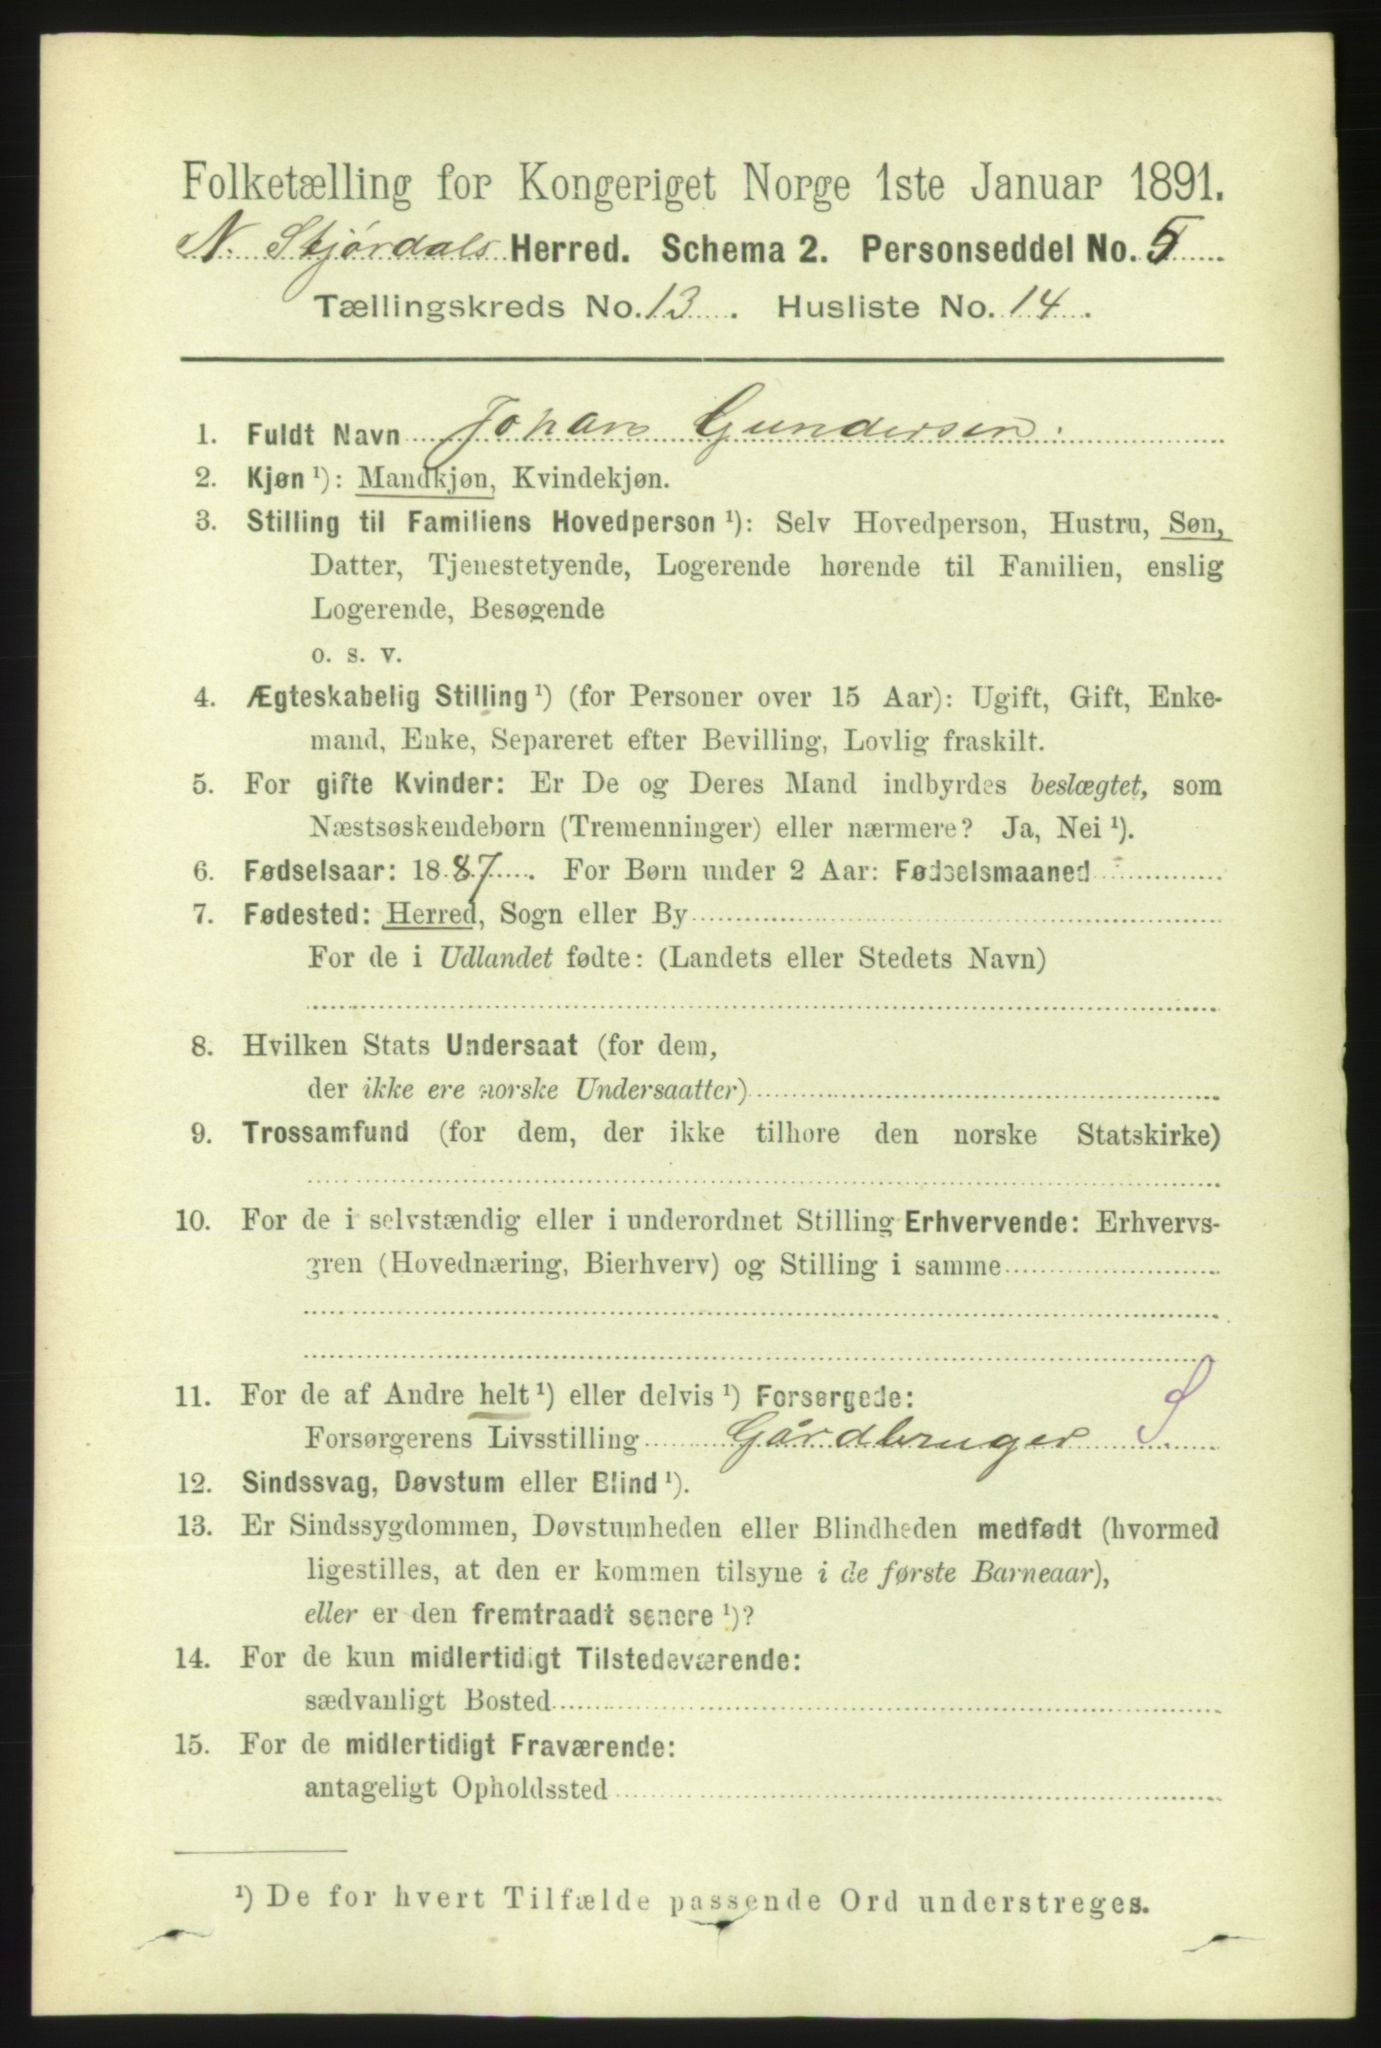 Folketælling for Kongeriget Norge 1ste Januar 1891.
N. Stjørdals Herred. Schema 2. Personseddel No. 5
Tællingskreds No. 13. Husliste No. 14.
1. Fuldt Navn Johan Gundersen.
2. Kjøn ¹): Mandkjøn, Kvindekjøn.
3. Stilling til Familiens Hovedperson ¹): Selv Hovedperson, Hustru, Søn,
Datter, Tjenestetyende, Logerende hørende til Familien, enslig
Logerende, Besøgende
o. s. v.
4. Ægteskabelig Stilling ¹) (for Personer over 15 Aar): Ugift, Gift, Enke-
mand, Enke, Separeret efter Bevilling, Lovlig fraskilt.
5. For gifte Kvinder: Er De og Deres Mand indbyrdes beslægtet, som
Næstsøskendebørn (Tremenninger) eller nærmere? Ja, Nei ¹).
6. Fødselsaar: 1887. For Børn under 2 Aar: Fødselsmaaned
7. Fødested: Herred, Sogn eller By
For de i Udlandet fødte: (Landets eller Stedets Navn)
8. Hvilken Stats Undersaat (for dem,
der ikke ere norske Undersaatter)
9. Trossamfund (for dem, der ikke tilhøre den norske Statskirke)
10. For de i selvstændig eller i underordnet Stilling Erhvervende: Erhvervs-
gren (Hovednæring, Bierhverv) og Stilling i samme
11. For de af Andre helt ¹) eller delvis ¹) Forsørgede:
Forsørgerens Livsstilling Gårdbruger S
12. Sindssvag, Døvstum eller Blind ¹).
13. Er Sindssygdommen, Døvstumheden eller Blindheden medfødt (hvormed
ligestilles, at den er kommen tilsyne i de første Barneaar),
eller er den fremtraadt senere ¹)?
14. For de kun midlertidigt Tilstedeværende:
sædvanligt Bosted
15. For de midlertidigt Fraværende:
antageligt Opholdssted
¹) De for hvert Tilfælde passende Ord understreges.